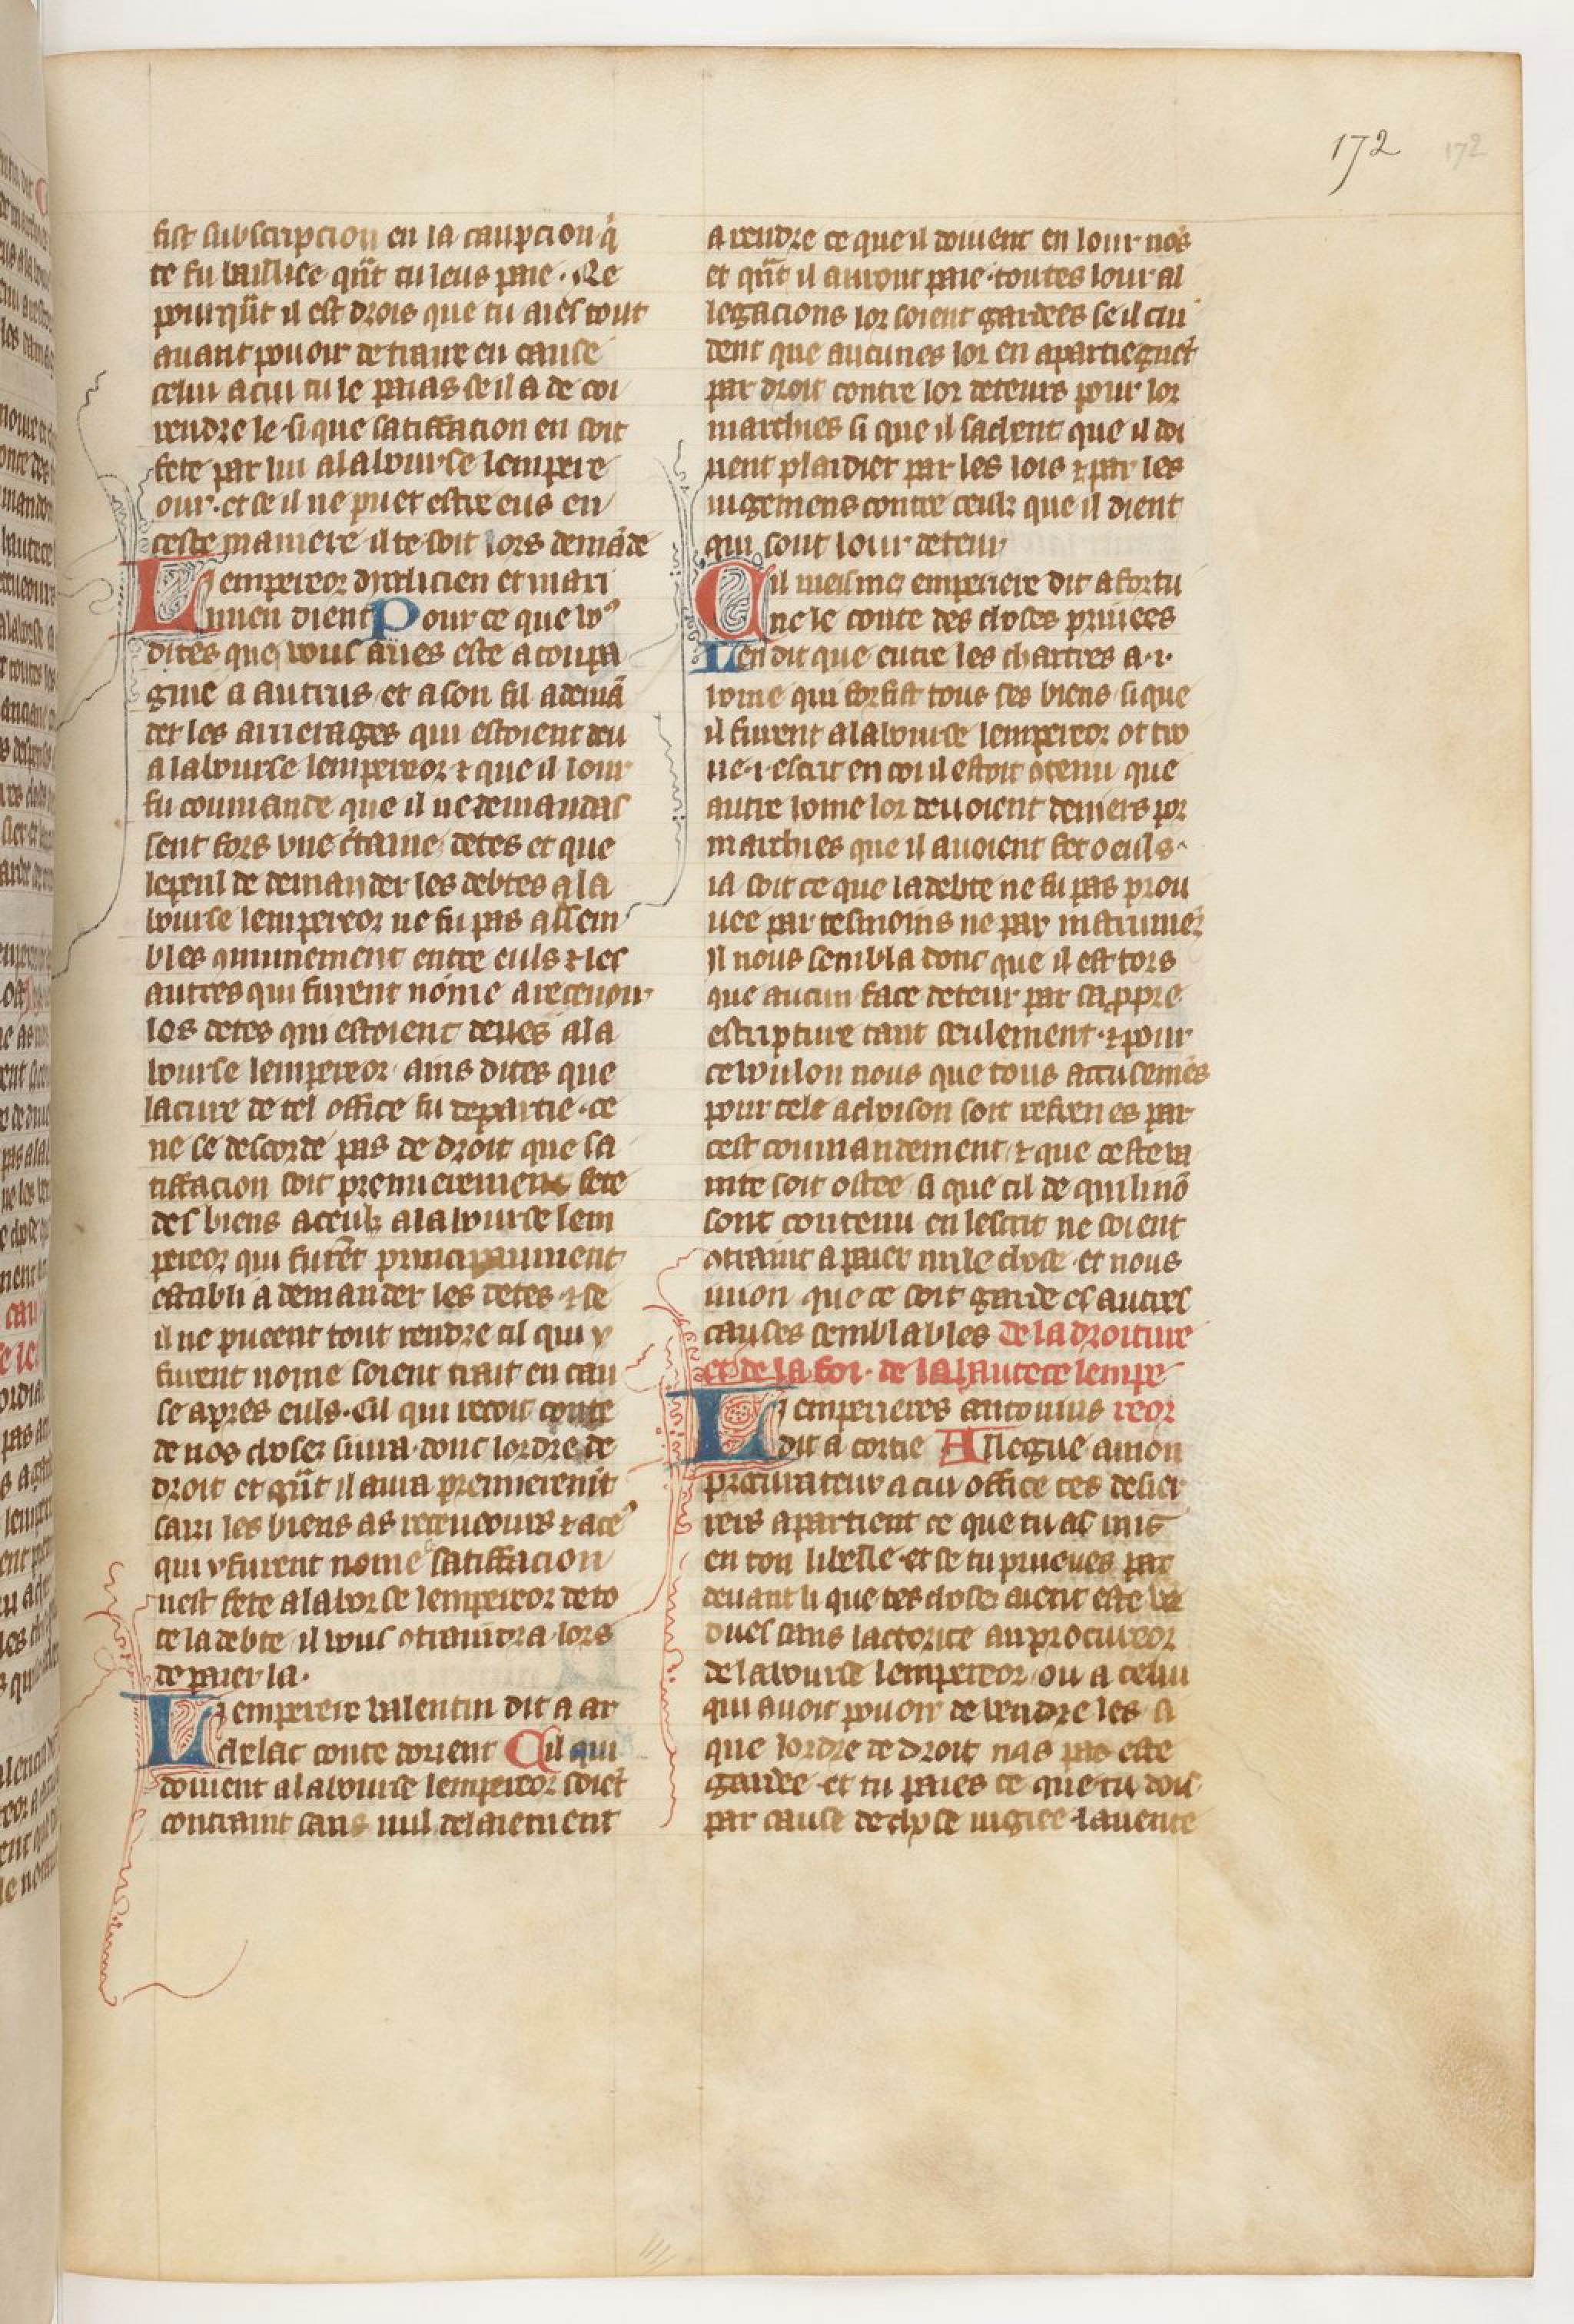 172 172
fist subscripcion en la caupcion q̾
te fu bailliee qn̄t tu leus paie. Ne
pourqn̄t il est drois que tu aies tout
auant pouoir de traire en cause
celui a cui tu le paias se il a de coi
rendre le. si que satiffation en soit
fete par lui a la bourse lempere
our. et se il ne puet estre eus en
ceste maniere il te soit lors demāde
Li empereor dyoclicien et maxi
mien dient Pour ce que vo᷒
dites que vous aues este a conpa
gnie a autrus et a son fil a demā
der les arrierages qui estoient deu
a la bourse lempereor ⁊ que il lour
fu coumande que il ne demandas
sent fors vne c̾taine detes et que
le peril de demander les debtes a la
bourse lempereor ne fu pas assem
bles ꝯmunement entre euls ⁊ les
autres qui furent nōme a receuoir
les detes qui estoient deues a la
bourse lempereor ains dites que
la cure de tel office fu departie. ce
ne se descorde pas de droit que sa
tiffacion soit premierement fete
des biens a ceulz a la bourse lem
pereor qui furēt principaument
establi a demander les detes. ⁊ se
il ne pueent tout rendre cil qui y
furent nome soient trait en cau
se apres euls. Cil qui recoit conte
de nos choses siura donc lordre de
droit et qn̄t il aura premierem̄t
saisi les biens as receueours ⁊ a ce᷒
qui y furent nome se satiffacion
nest fete a la borse lempereor de to
te la debte il vous ꝯtraindra lors
de paier la.
Li emperere valentin dit a ar
chelac conte dorient Cil qui
doiuent a la bourse lempereor soiēt
contraint sans nul delaiement
a rendre ce que il doiuent en lour nōs
et qn̄t il auront paie. toutes lour al
legacions lor soient gardees se il cui
dent que aucunes lor en apartiegnēt
par droit contre lor deteurs pour lor
marchies si que il sachent que il doi
uent plaidier par les lois ⁊ par les
iugemens contre ceulz que il dient
qui sont lour deteur
Cil meismes emperiere dit a fortu
ne le conte des choses priuees
Len dit que entre les chartres a .i.
home qui forfist tous ses biens si que
il furent a la bourse lempereor ot tro
ue .i. escrit en coi il estoit ꝯtenu que
autre home lor deuoient deniers por
marchies que il auoient fet o euls.
ia soit ce que la debte ne fu pas prou
uee par tesmoins ne par instrumēz
Il nous sembla donc que il est tors
que aucun face deteur par sa ꝓpre
escripture tant seulement. ⁊ pour
ce voulon nous que tous accusemēs
pour cele achoison soit refrenes par
cest coumandement ⁊ que ceste va
nite soit ostee si que cil de qui li nō
sont contenu en lescrit ne soient
ꝯtraint a paier nule chose et nous
uuon que ce soit garde es autres
causes semblables de la droiture
et de la foi. de la hautece lempe
Li emperieres antonius reor
dit a cortie Allegue a mon
procurateur a cui office ces desier
reirs apartient ce que tu as mis
en ton libelle. et se tu prueues par
deuant li que tes choses aient este ve
dues sans lactorite au procureor
de la bourse lempereor ou a celui
qui auoit pouoir de vendre les si
que lordre de droit nas pas este
gardee et tu paies ce que tu dois
par cause de chose iugiee. la uente